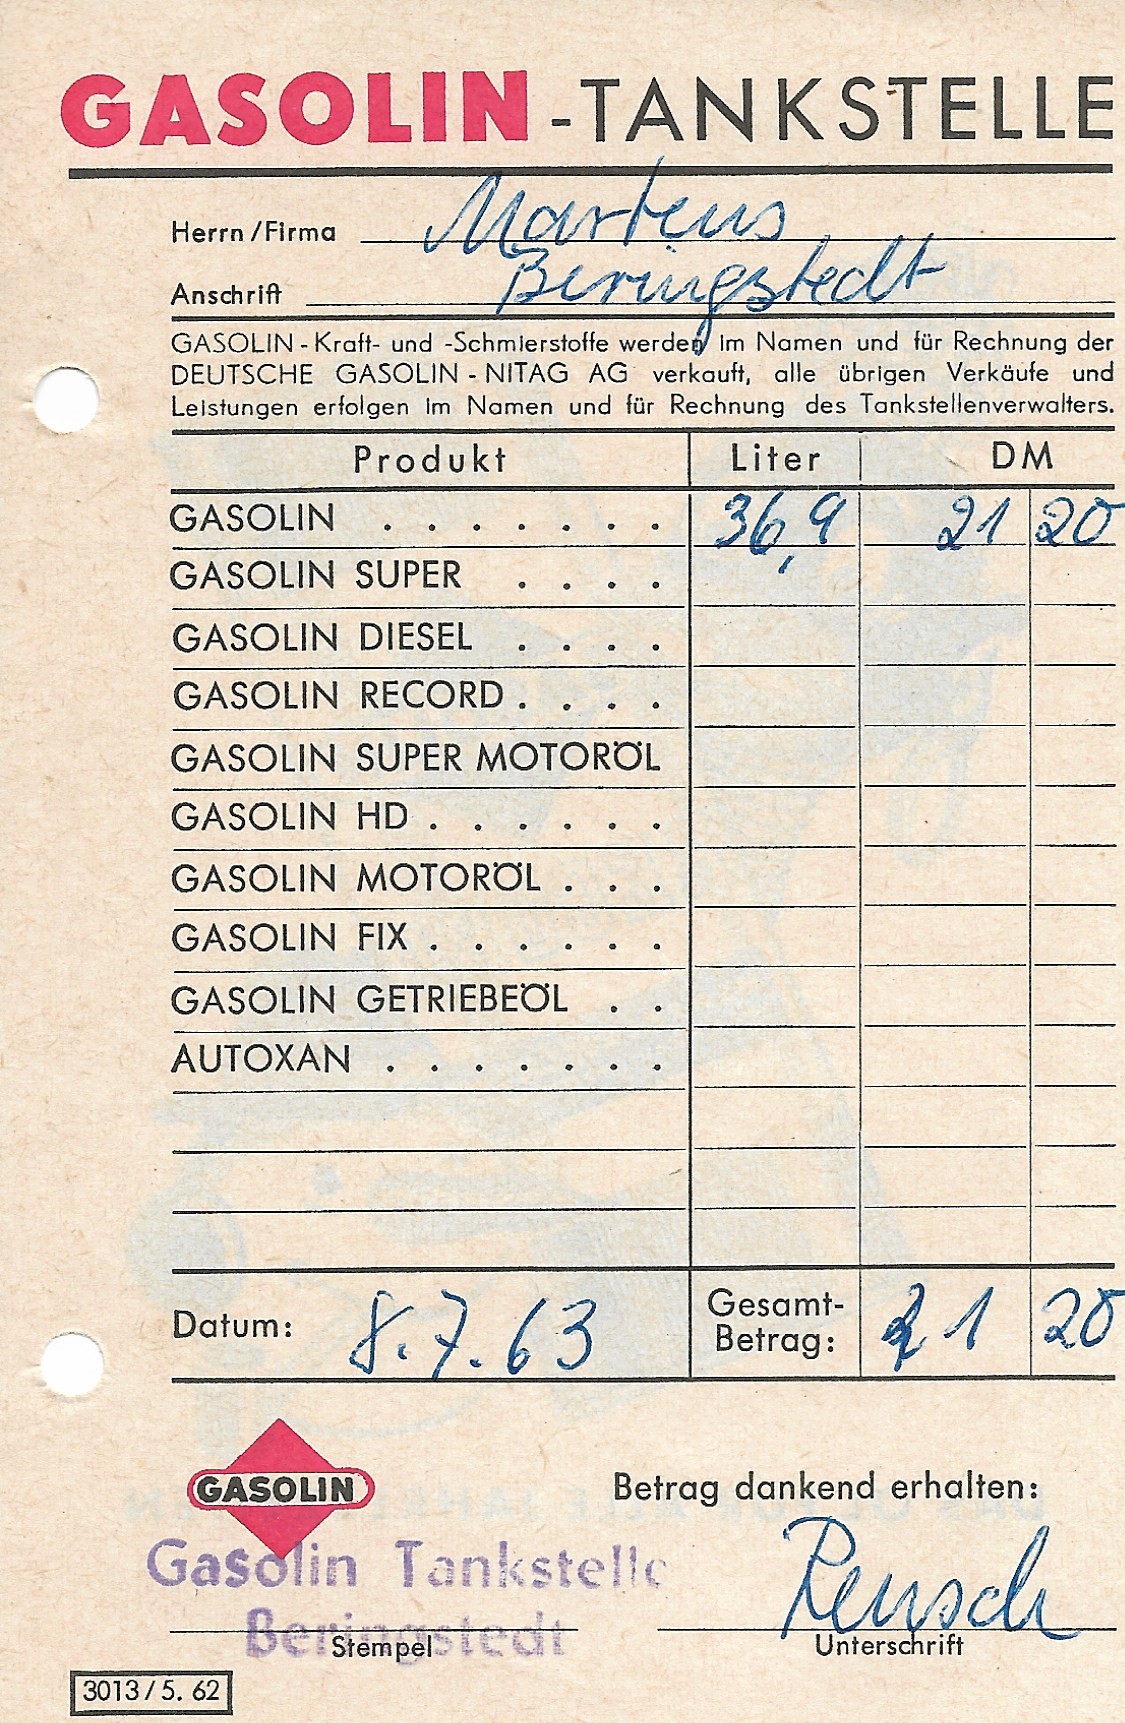 GASOLIN-TANKSTELLE
Herrn/Firma Martens
Anschrift Beringstedt
GASOLIN-Kraft- und -Schmierstoffe werden im Namen und für Rechnung der
DEUTSCHE GASOLIN-NITAG AG verkauft, alle übrigen Verkäufe und
Leistungen erfolgen im Namen und für Rechnung des Tankstellenverwalters.
Produkt Liter DM
GASOLIN . . . . . . . 36,9 21 20
GASOLIN SUPER . . . .
GASOLIN DIESEL . . . .
GASOLIN RECORD . . . .
GASOLIN SUPER MOTORÖL
GASOLIN HD . . . . . .
GASOLIN MOTORÖL . . .
GASOLIN FIX . . . . . .
GASOLIN GETRIEBEÖL . .
AUTOXAN . . . . . . .
Datum: 8.7.63 Gesamt-Betrag: 21 20
GASOLIN
Betrag dankend erhalten:
Gasolin Tankstelle
Beringstedt
Rensch
Stempel Unterschrift
3013/5. 62